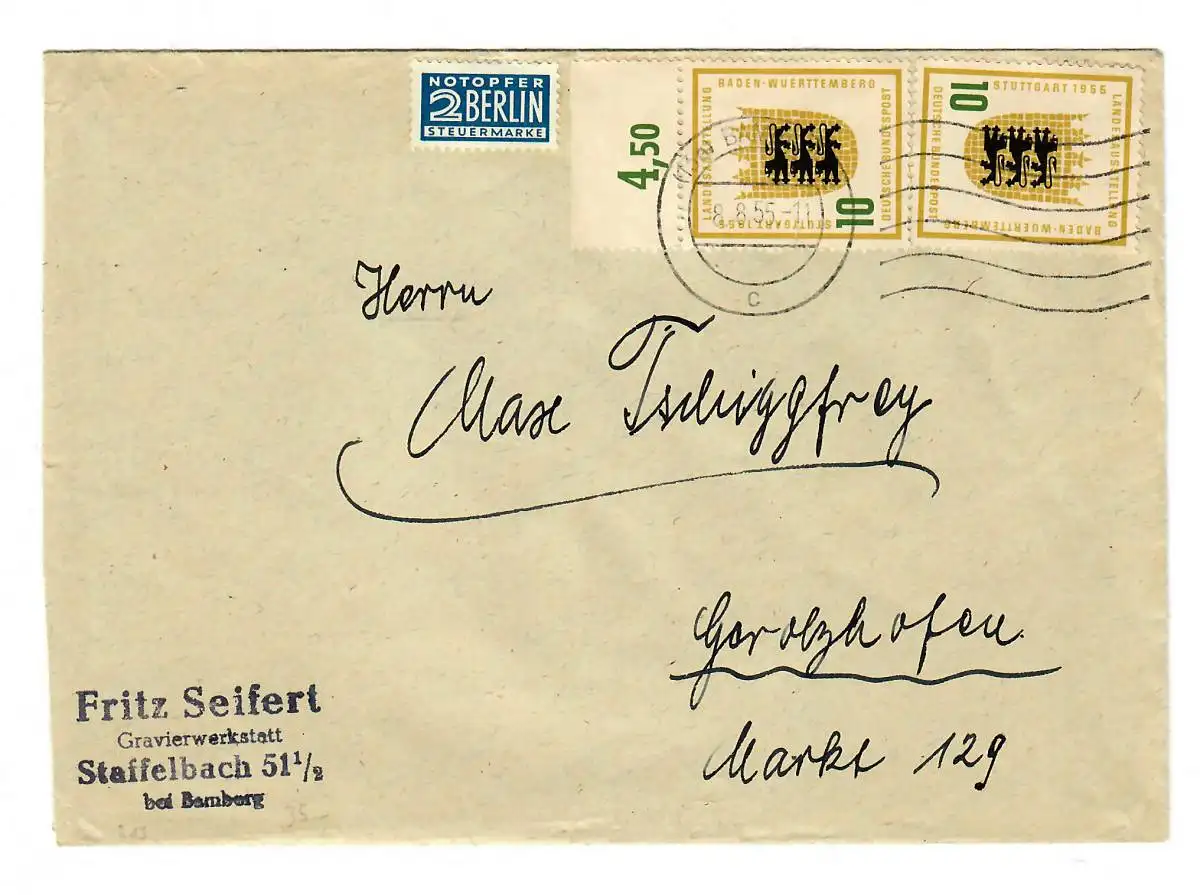 NOTOPFER
2 BERLIN
STEUERMARKE
4,50
BADEN-WUERTTEMBERG
LANDESAUSSTELLUNG
STUTTGART 1955
DEUTSCHE BUNDESPOST
10
10
STUTTGART 1955
LANDESAUSSTELLUNG
BADEN-WUERTTEMBERG
DEUTSCHE BUNDESPOST
8.8.55-11
c
Herrn
Max Tschiggfrey
Gerolzhofen.
Markt 129
Fritz Seifert
Gravierwerkstatt
Staffelbach 51 1/2
bei Bamberg
35-